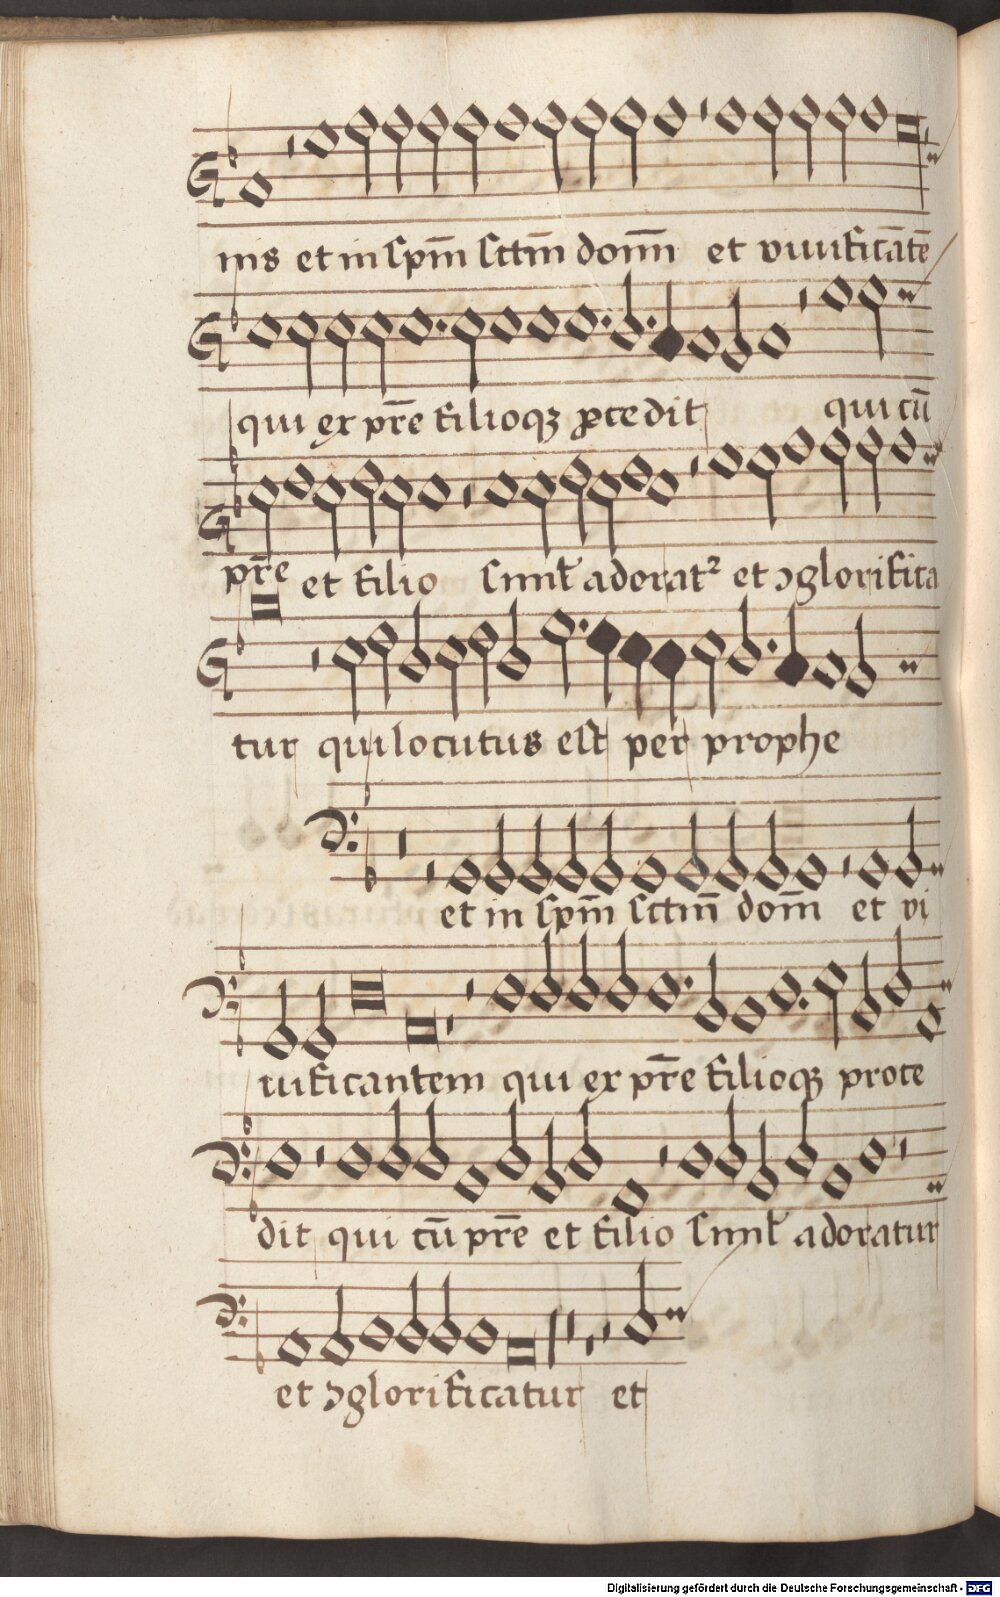 nis et in sp̄m sctm̄ dom̄ et viuificātē
qui ex pr̄e filioqꝫ ꝓcedit qui cū
pr̄e et filio siml̄ adorat² et ↄglorifica
tur qui locutus est per prophe
et in sp̄m sctm̄ dom̄ et vi
uificantem qui ex pr̄e filioqꝫ proce
dit qui cū pr̄e et filio siml̄ adoratur
et ↄglorificatur et
Digitalisierung gefördert durch die Deutsche Forschungsgemeinschaft - DFG